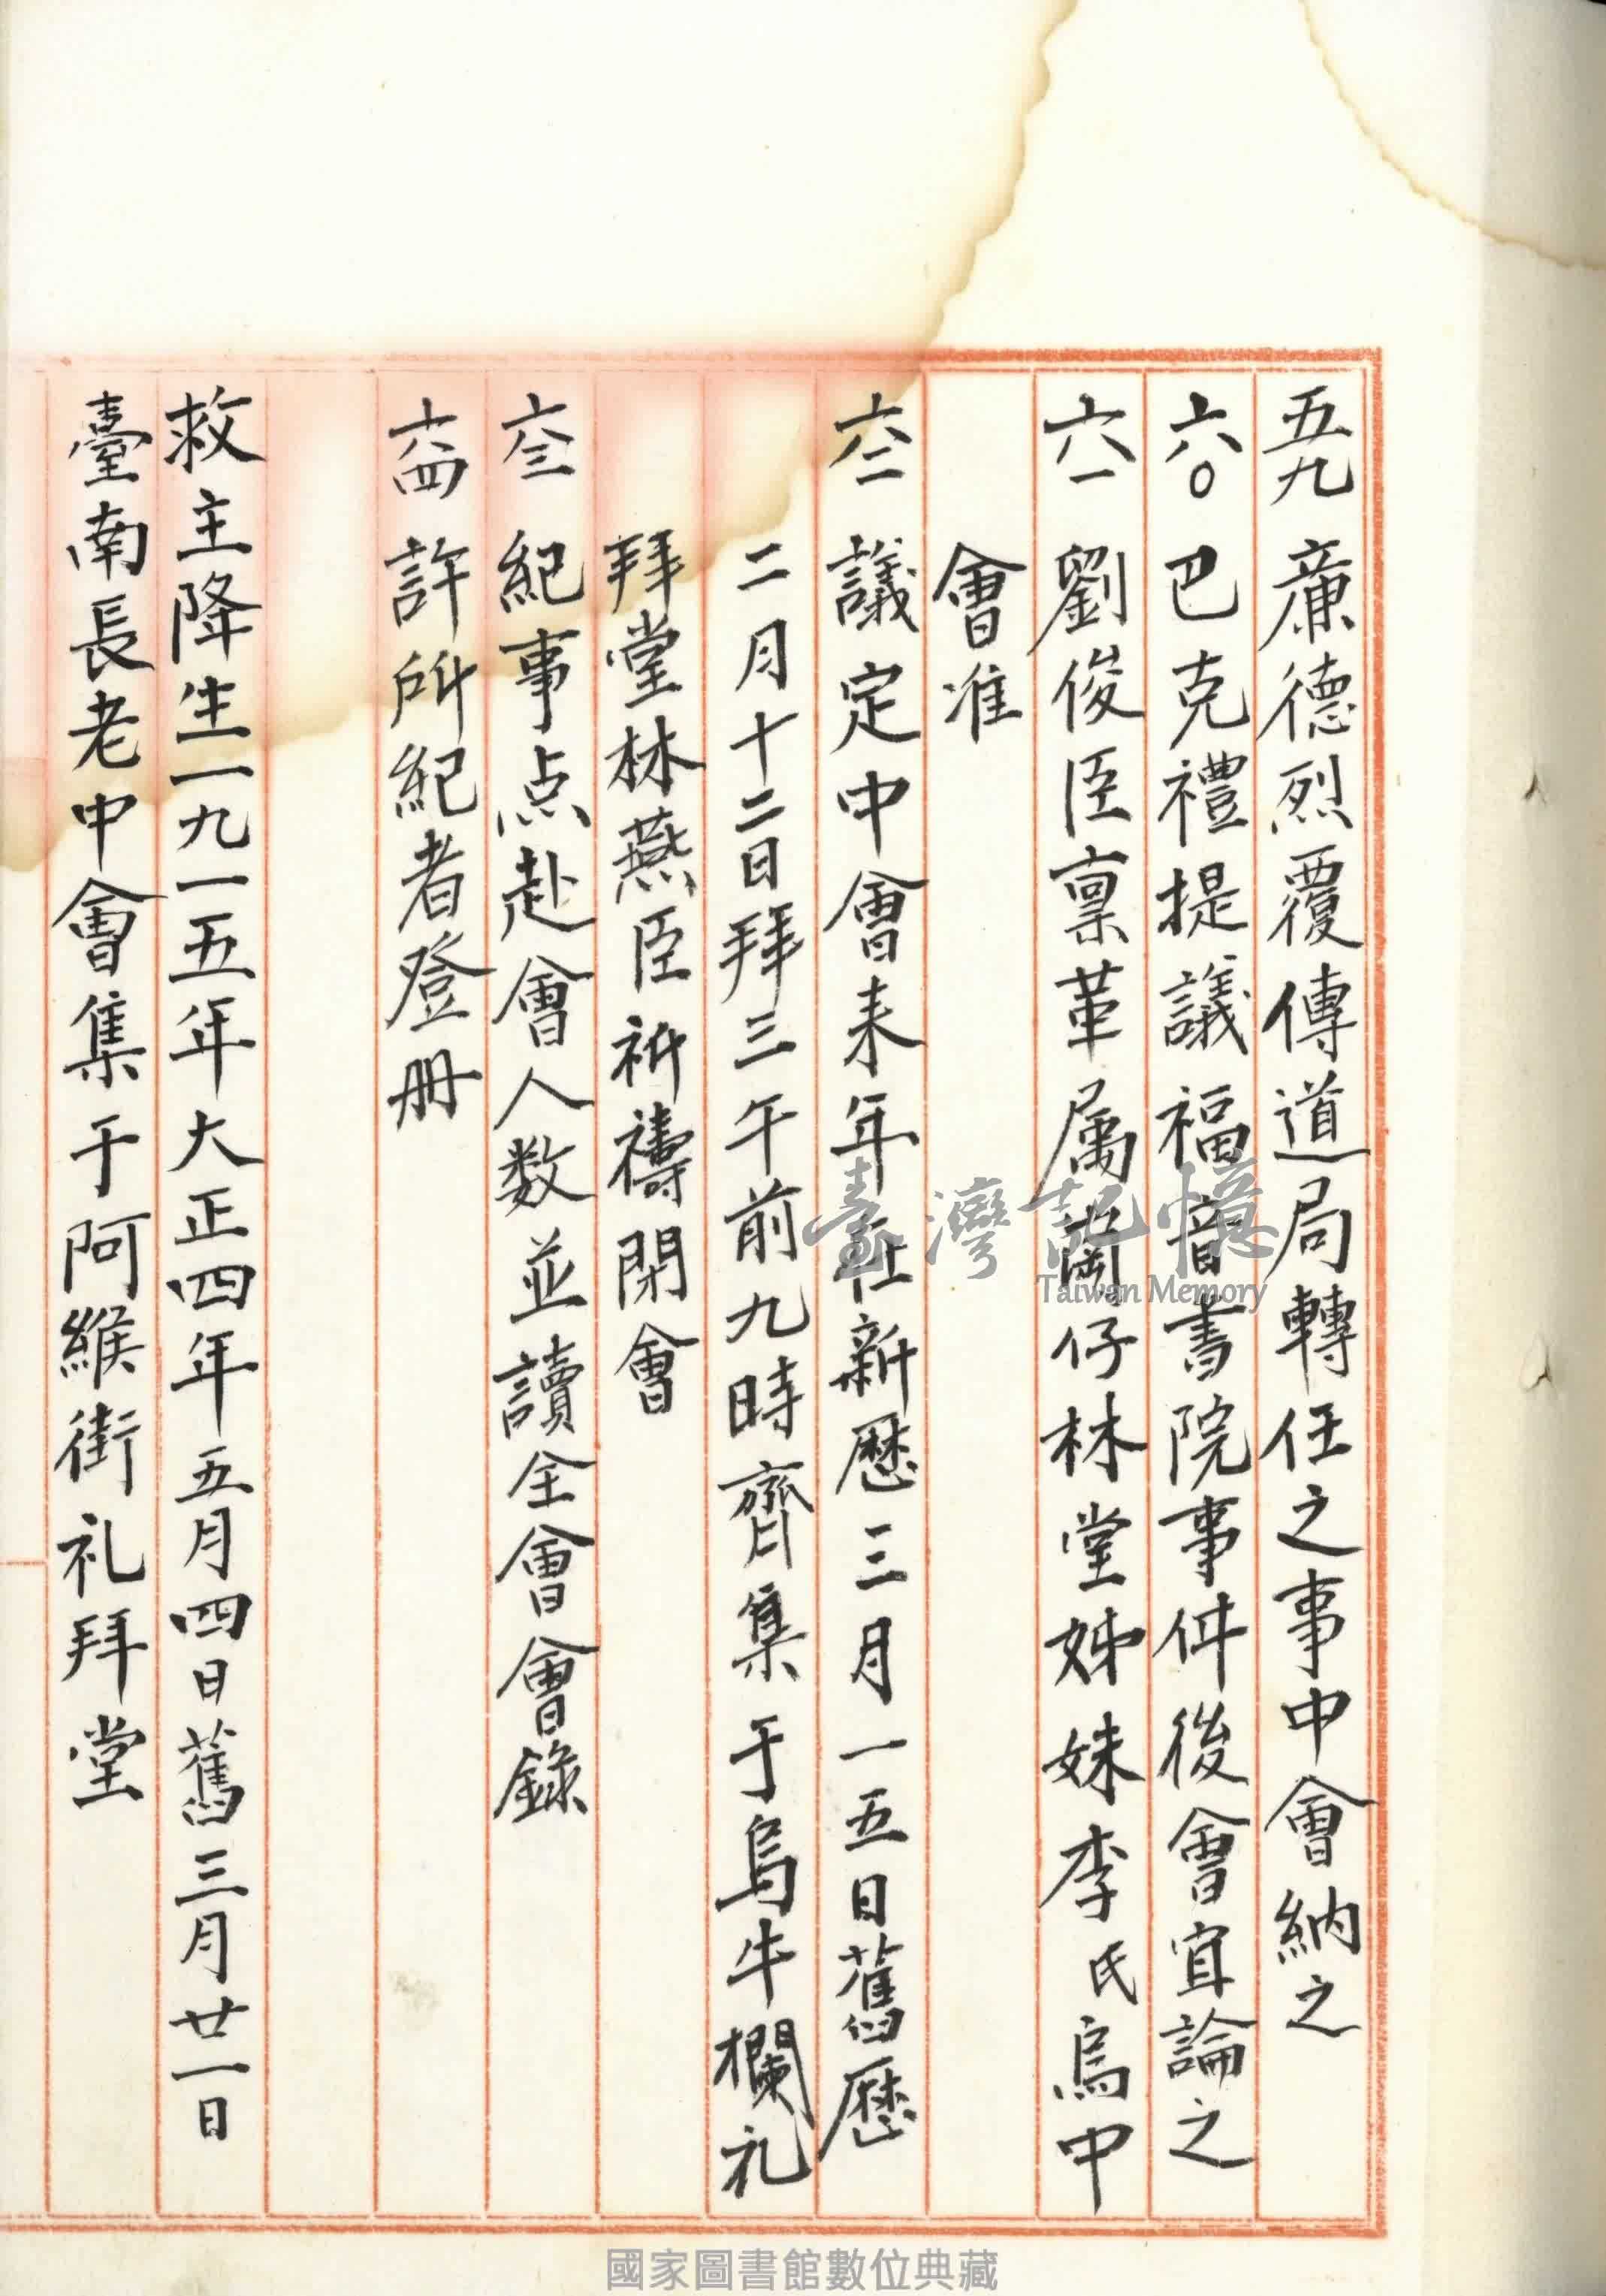 五九 廉德烈覆傳道局轉任之事中會納之
六〇 巴克禮提議福音書院事件後會宜論之
六一 劉俊臣禀革属崗仔林堂姊妹李氏烏中
會准
六二 議定中會来年在新歷三月一五日舊歷
二月十二日拜三午前九時齊集于烏牛欄礼
拜堂林燕臣祈禱閉會
六三 紀事点赴會人数並讀全會會錄
六四 許所紀者登册
救主降生一九一五年大正四年五月四日舊三月廿一日
臺南長老中會集于阿緱街礼拜堂
臺灣記憶
Taiwan Memory
國家圖書館數位典藏